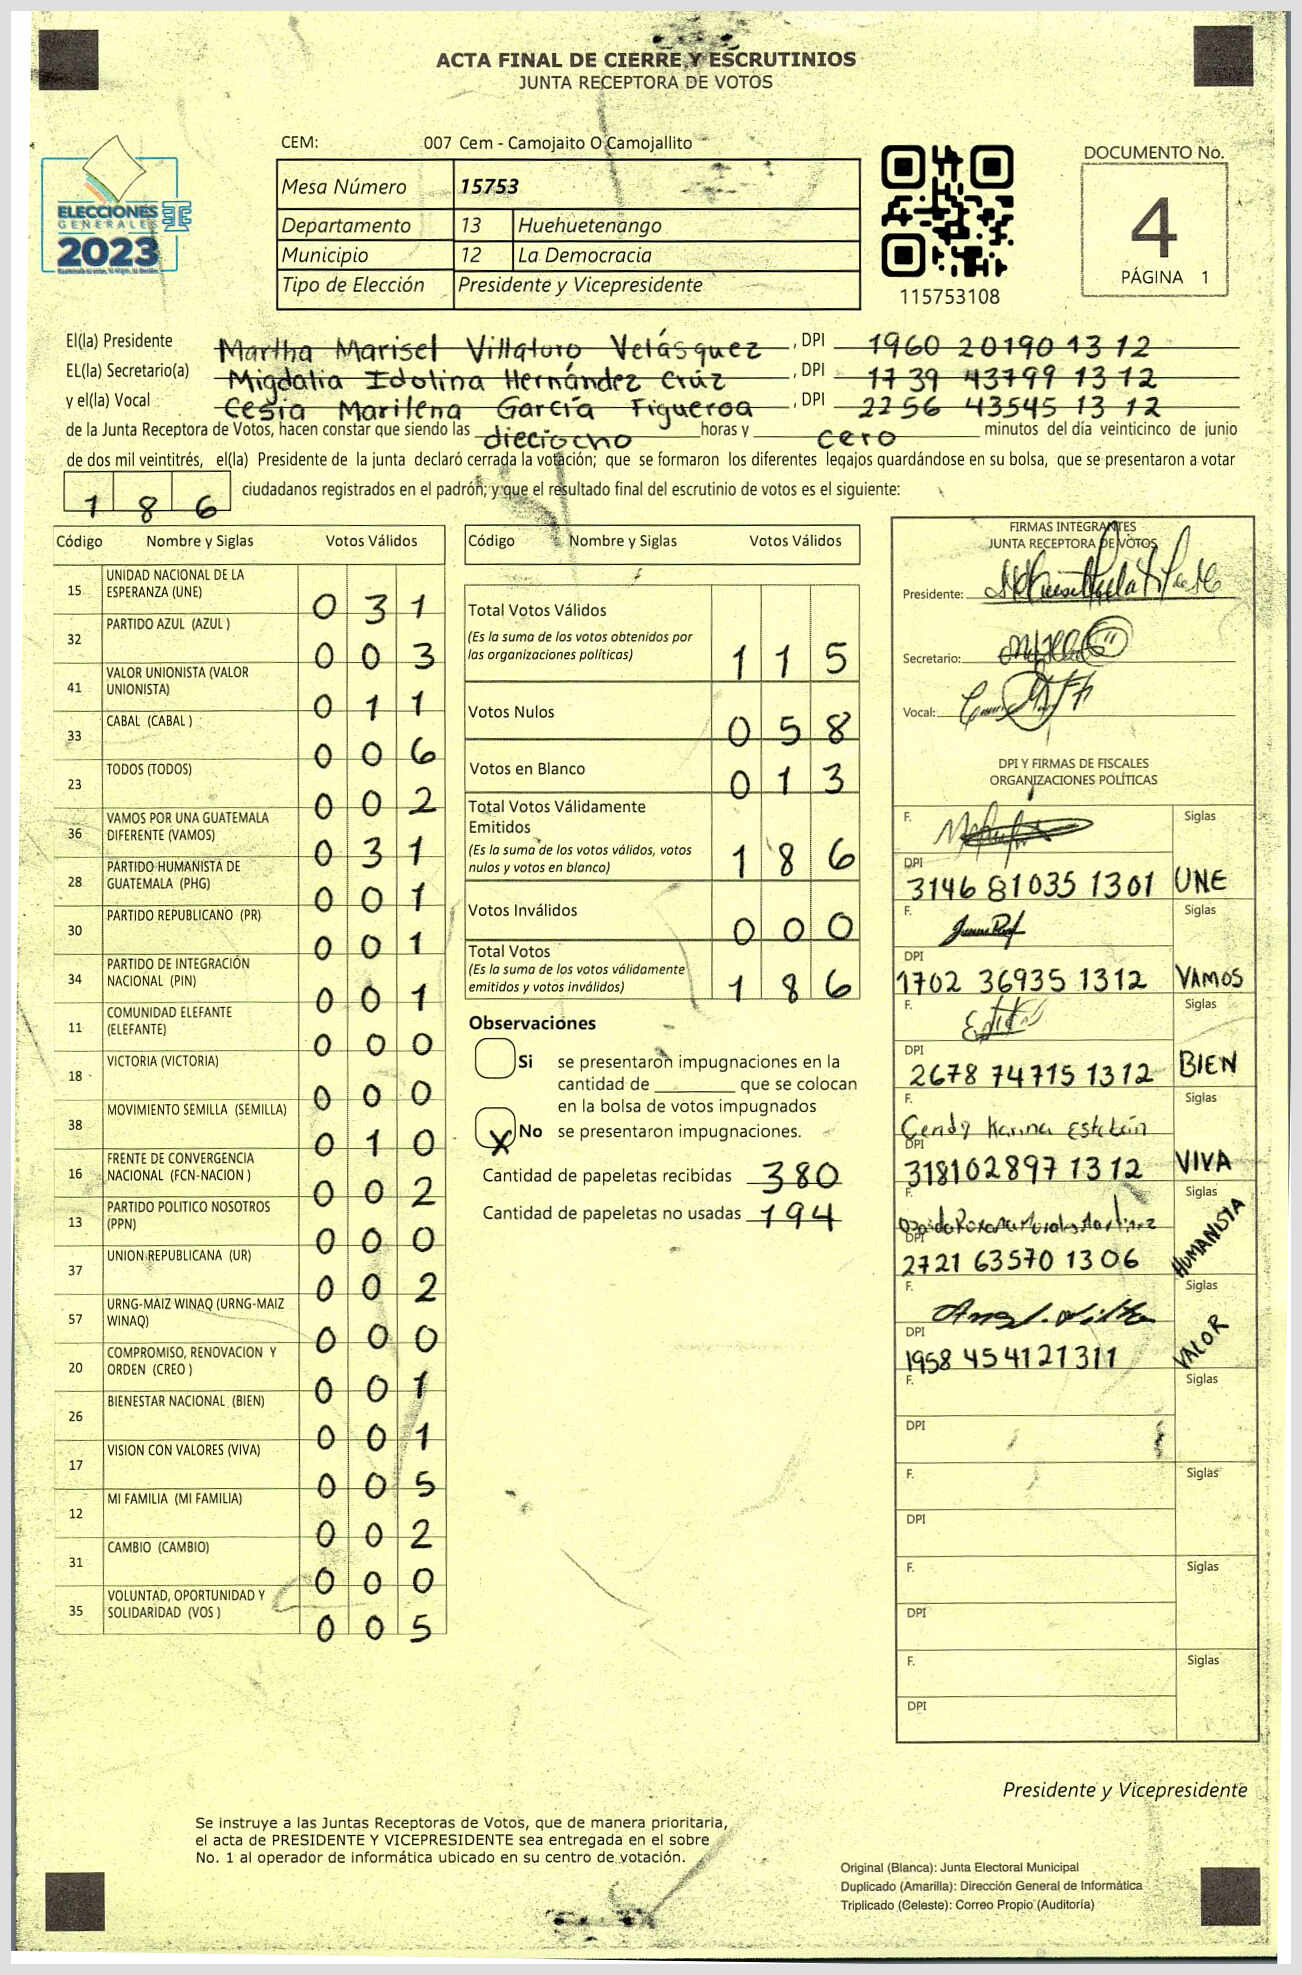 ACTA FINAL DE CIERRE Y ESCRUTINIOS
JUNTA RECEPTORA DE VOTOS
CEM: 007 Cem - Camojaito O Camojallito
ELECCIONES
GENERALES
2023
Mesa Número 15753
Departamento 13 Huehuetenango
Municipio 12 La Democracia
Tipo de Elección Presidente y Vicepresidente
115753108
DOCUMENTO No.
4
PÁGINA 1
El(la) Presidente Martha Marisel Villatoro Velásquez , DPI 1960 20190 13 12
EL(la) Secretario(a) Migdalia Idolina Hernández Cruz , DPI 1739 43799 13 12
y el(la) Vocal Cesia Marilena García Figueroa , DPI 2256 43545 13 12
de la Junta Receptora de Votos, hacen constar que siendo las dieciocho horas y cero minutos del día veinticinco de junio
de dos mil veintitrés, el(la) Presidente de la junta declaró cerrada la votación; que se formaron los diferentes legajos guardándose en su bolsa, que se presentaron a votar
186 ciudadanos registrados en el padrón; y que el resultado final del escrutinio de votos es el siguiente:
Código Nombre y Siglas Votos Válidos
15 UNIDAD NACIONAL DE LA ESPERANZA (UNE) 031
32 PARTIDO AZUL (AZUL ) 003
41 VALOR UNIONISTA (VALOR UNIONISTA) 011
33 CABAL (CABAL ) 006
23 TODOS (TODOS) 002
36 VAMOS POR UNA GUATEMALA DIFERENTE (VAMOS) 031
28 PARTIDO HUMANISTA DE GUATEMALA (PHG) 001
30 PARTIDO REPUBLICANO (PR) 001
34 PARTIDO DE INTEGRACIÓN NACIONAL (PIN) 001
11 COMUNIDAD ELEFANTE (ELEFANTE) 000
18 VICTORIA (VICTORIA) 000
38 MOVIMIENTO SEMILLA (SEMILLA) 010
16 FRENTE DE CONVERGENCIA NACIONAL (FCN-NACION ) 002
13 PARTIDO POLITICO NOSOTROS (PPN) 000
37 UNION REPUBLICANA (UR) 002
57 URNG-MAIZ WINAQ (URNG-MAIZ WINAQ) 000
20 COMPROMISO, RENOVACION Y ORDEN (CREO ) 001
26 BIENESTAR NACIONAL (BIEN) 001
17 VISION CON VALORES (VIVA) 005
12 MI FAMILIA (MI FAMILIA) 002
31 CAMBIO (CAMBIO) 000
35 VOLUNTAD, OPORTUNIDAD Y SOLIDARIDAD (VOS ) 005
Código Nombre y Siglas Votos Válidos
Total Votos Válidos
(Es la suma de los votos obtenidos por
las organizaciones políticas) 115
Votos Nulos 058
Votos en Blanco 013
Total Votos Válidamente
Emitidos
(Es la suma de los votos válidos, votos
nulos y votos en blanco) 186
Votos Inválidos 000
Total Votos
(Es la suma de los votos válidamente
emitidos y votos inválidos) 186
Observaciones
Si se presentaron impugnaciones en la
cantidad de ________ que se colocan
en la bolsa de votos impugnados
X No se presentaron impugnaciones.
Cantidad de papeletas recibidas 380
Cantidad de papeletas no usadas 194
FIRMAS INTEGRANTES
JUNTA RECEPTORA DE VOTOS
Presidente:
Secretario:
Vocal:
DPI Y FIRMAS DE FISCALES
ORGANIZACIONES POLÍTICAS
F. Siglas
DPI
3146 81035 1301 UNE
F. Siglas
DPI
1702 36935 1312 VAMOS
F. Siglas
DPI
2678 74715 1312 BIEN
F. Siglas
Cendy Karina Esteban
DPI
318102897 1312 VIVA
F. Siglas
DPI
2721 63570 1306 HUMANISTA
F. Siglas
DPI
1958 454121311 VALOR
F. Siglas
DPI
F. Siglas
DPI
F. Siglas
DPI
F. Siglas
DPI
Presidente y Vicepresidente
Se instruye a las Juntas Receptoras de Votos, que de manera prioritaria,
el acta de PRESIDENTE Y VICEPRESIDENTE sea entregada en el sobre
No. 1 al operador de informática ubicado en su centro de votación.
Original (Blanca): Junta Electoral Municipal
Duplicado (Amarilla): Dirección General de Informática
Triplicado (Celeste): Correo Propio (Auditoría)